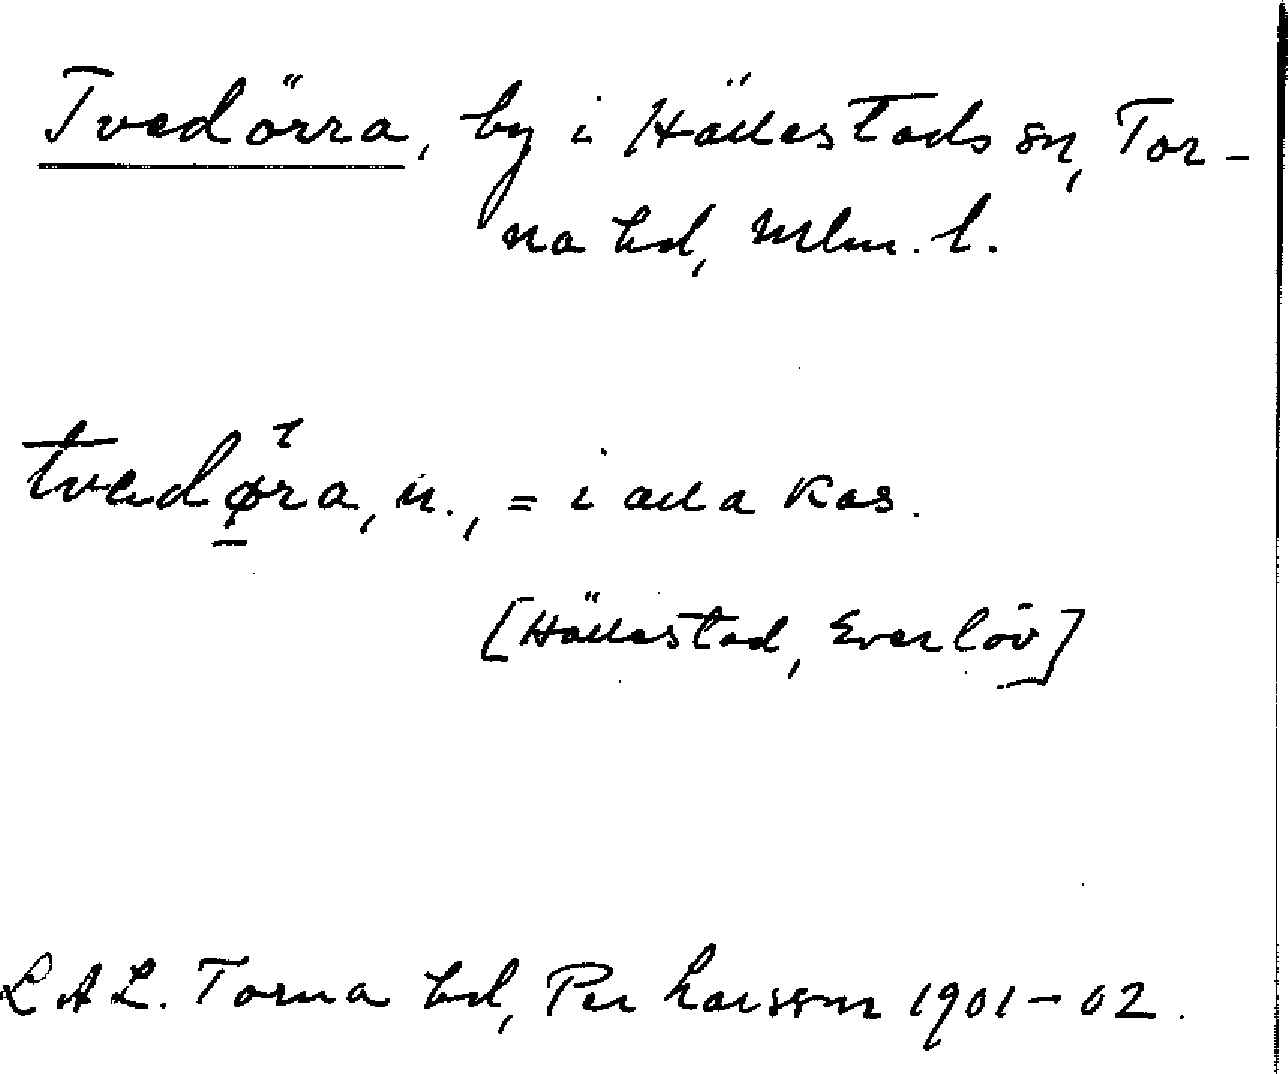 Tvedörra, by i Hällestads sn, Tor-
na hd, Mlm. l.
tvedøra, n., = i alla kas.
[Hällestad, Everlöv]
LAL. Torna hd, Per Larsson 1901-02.